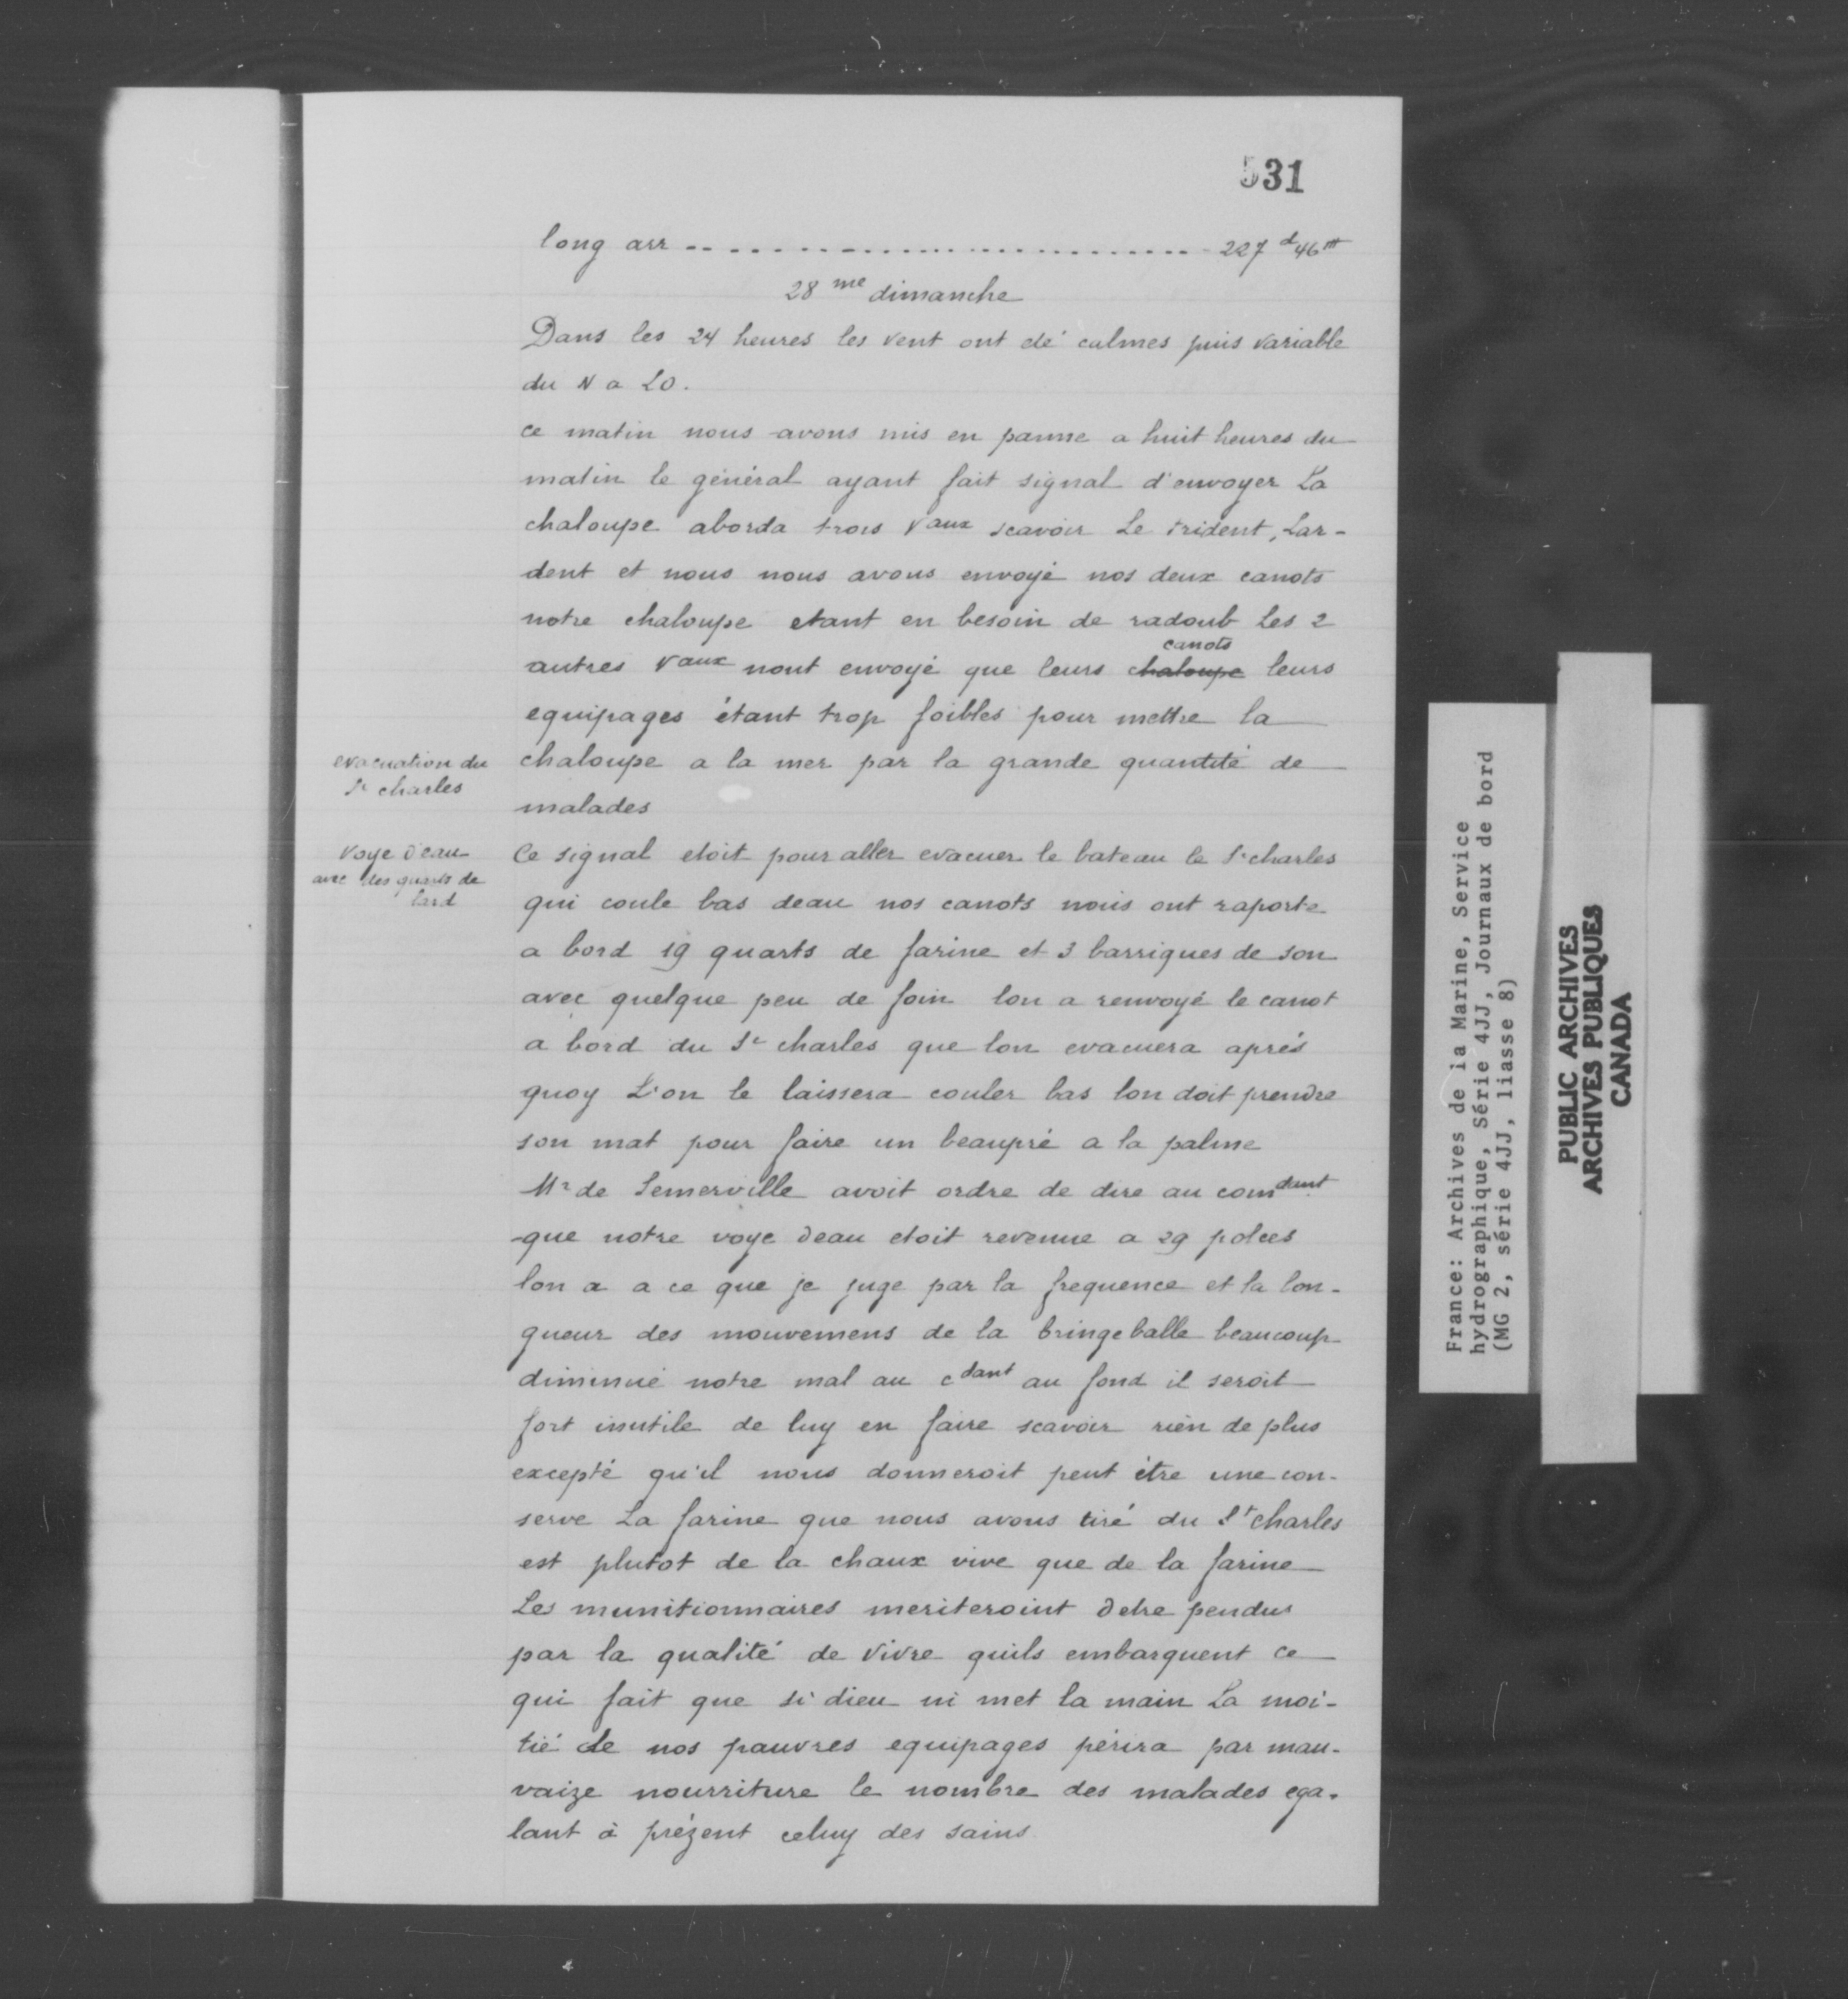 531
long arr ------------------------------ 227 d 46 m
28 me dimanche
Dans les 24 heures les vent ont été calmes puis variable
du N a LO.
ce matin nous avons mis en panne a huit heures du
matin le général ayant fait signal d'envoyer La
chaloupe aborda trois Vaux scavoir Le trident, Lar-
dent et nous nous avons envoyé nos deux canots
notre chaloupe etant en besoin de radoub Les 2
canots
autres Vaux nont envoyé que leurs chaloupe leurs
equipages étant trop foibles pour mettre la
evacuation du
St charles
chaloupe a la mer par la grande quantité de
malades
Voye d'eau
avec des quarts de
lard
Ce signal etoit pour aller evacuer le bateau le St charles
qui coule bas deau nos canots nous ont raporte
a bord 19 quarts de farine et 3 barriques de son
avec quelque peu de foin lon a renvoyé le canot
a bord du St charles que lon evacuera aprés
quoy L'on le laissera couler bas lon doit prendre
son mat pour faire un beaupré a la palme
Mr de Semerville avoit ordre de dire au comdant
que notre voye deau etoit revenue a 29 polces
lon a a ce que je juge par la frequence et la lon-
gueur des mouvemens de la bringeballe beaucoup
diminué notre mal au cdant au fond il seroit
fort inutile de luy en faire scavoir rien de plus
excepté qu'il nous donneroit peut étre une con-
serve La farine que nous avons tiré du St charles
est plutot de la chaux vive que de la farine
Les munitionnaires meriteroint detre pendus
par la qualité de vivre quils embarquent ce
qui fait que si dieu ni met la main La moi-
tié de nos pauvres equipages périra par mau-
vaize nourriture le nombre des malades ega-
lant à prézent celuy des sains
France: Archives de la Marine, Service
hydrographique, Série 4JJ, Journaux de bord
(MG 2, série 4JJ, liasse 8)
PUBLIC ARCHIVES
ARCHIVES PUBLIQUES
CANADA